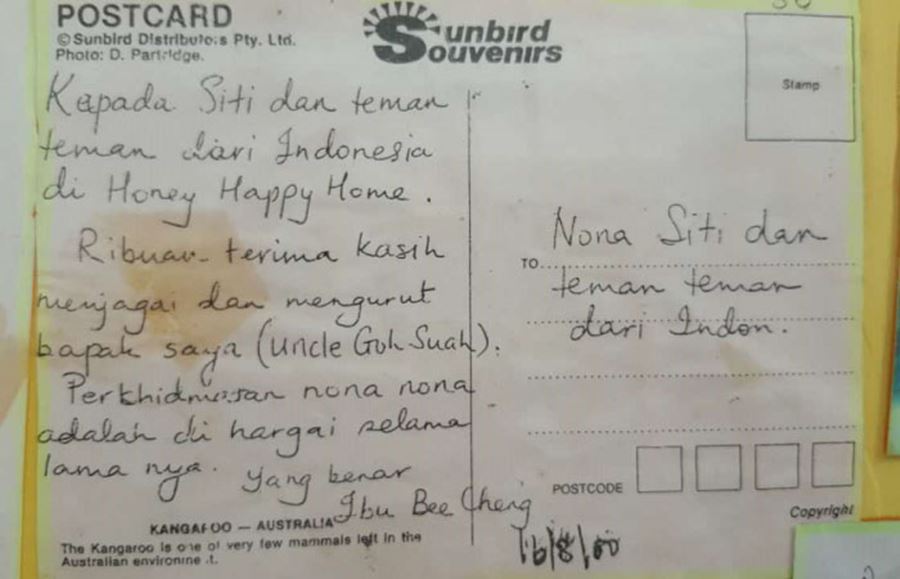 POSTCARD
© Sunbird Distributors Pty. Ltd.
Photo: D. Partridge.
Sunbird
Souvenirs
Stamp
Kepada Siti dan teman
teman dari Indonesia
di Honey Happy Home.
Ribuan terima kasih
menjagai dan mengurut
bapak saya (Uncle Goh Suah).
Perkhidmatan nona nona
adalah di hargai selama
lama nya.
Yang benar
Ibu Bee Cheng
16/8/00
KANGAROO — AUSTRALIA
The Kangaroo is one of very few mammals left in the
Australian environment.
TO
Nona Siti dan
teman teman
dari Indon.
POSTCODE
Copyright